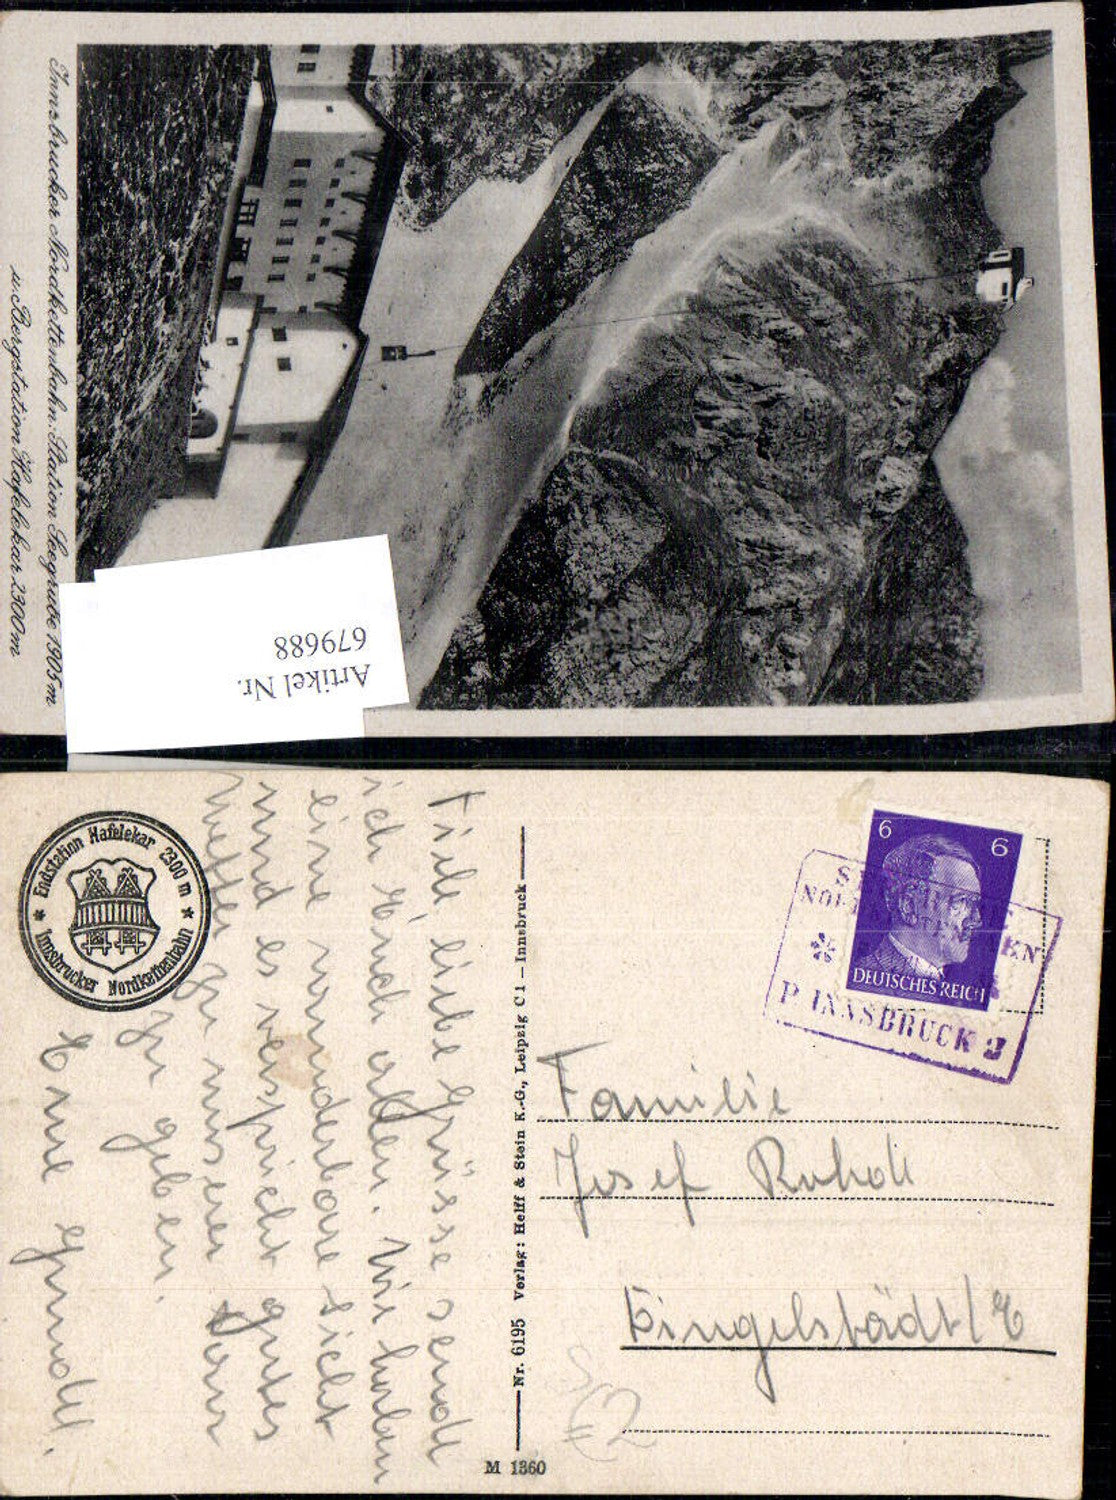 Innsbrucker Nordkettenbahn. Station Seegrube 1905 m
u. Bergstation Hafelekar 2300 m
Artikel Nr.
679688
* Endstation Hafelekar 2300 m *
Innsbrucker Nordkettenbahn
Viele liebe Grüsse sendet
ich Euch allen. Wir haben
eine wunderbare Sicht
und es verspricht gutes
Wetter zu unserer
zu geben.
Eure
Nr. 6195 Verlag: Helff & Stein K.-G., Leipzig C 1 – Innsbruck
M 1360
6 6
DEUTSCHES REICH
P INNSBRUCK 2
Familie
Josef